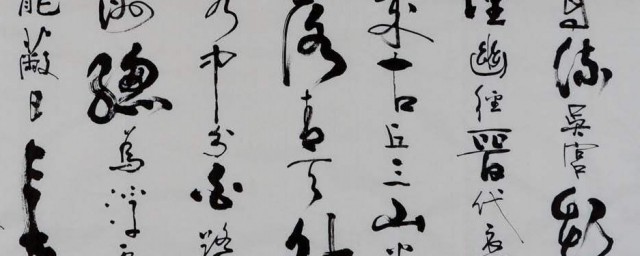 自流吳宮花
埋幽徑晉代衣
成古丘三山半
落青天外
水中分白鷺
洲總為浮雲
能蔽日長